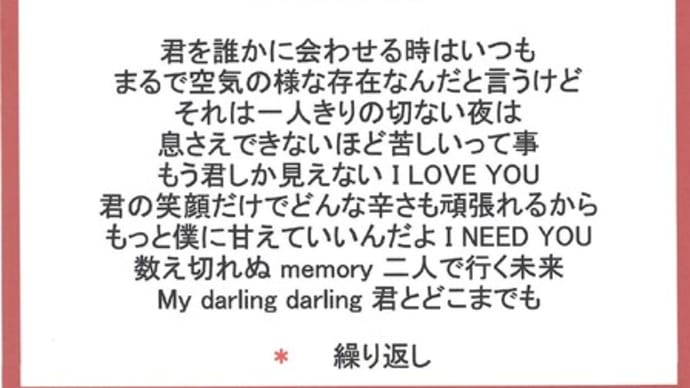 君を誰かに会わせる時はいつも
まるで空気の様な存在なんだと言うけど
それは一人きりの切ない夜は
息さえできないほど苦しいって事
もう君しか見えない I LOVE YOU
君の笑顔だけでどんな辛さも頑張れるから
もっと僕に甘えていいんだよ I NEED YOU
数え切れぬ memory 二人で行く未来
My darling darling 君とどこまでも
* 繰り返し